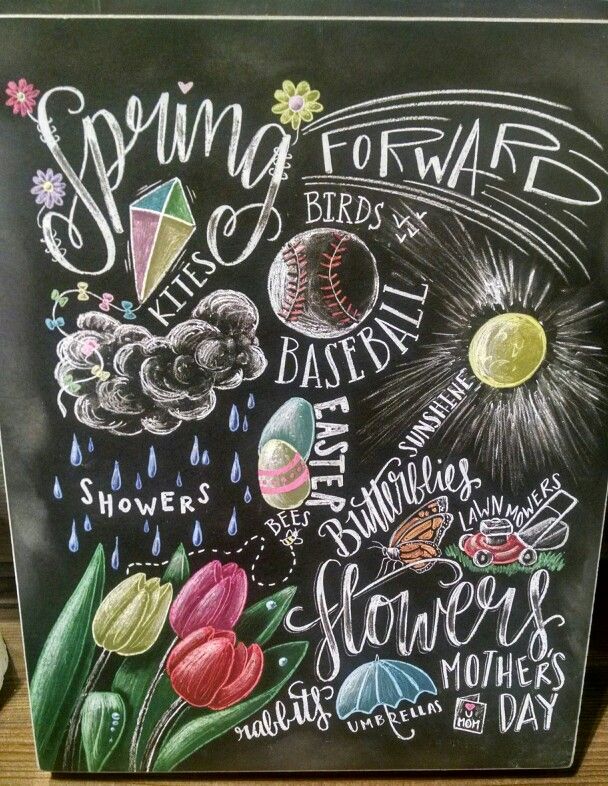 Spring
FORWARD
BIRDS
KITES
BASEBALL
SUNSHINE
EASTER
SHOWERS
BEES
Butterflies
LAWN MOWERS
flowers
MOTHER'S
DAY
rabbits
UMBRELLAS
U
MOM